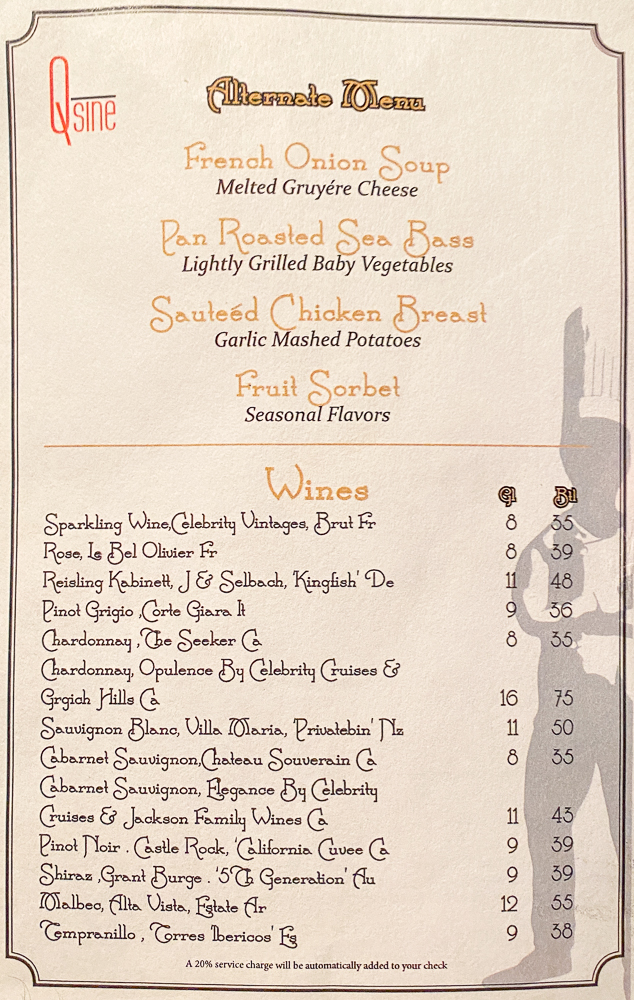 Qsine
Alternate Menu
French Onion Soup
Melted Gruyére Cheese
Pan Roasted Sea Bass
Lightly Grilled Baby Vegetables
Sauteéd Chicken Breast
Garlic Mashed Potatoes
Fruit Sorbet
Seasonal Flavors
Wines Gl Btl
Sparkling Wine,Celebrity Vintages, Brut Fr 8 35
Rose, Le Bel Olivier Fr 8 39
Reisling Kabinett, J & Selbach, 'Kingfish' De 11 48
Pinot Grigio ,Corte Giara It 9 36
Chardonnay ,The Seeker Ca 8 35
Chardonnay, Opulence By Celebrity Cruises &
Grgich Hills Ca 16 75
Sauvignon Blanc, Villa Maria, 'Privatebin' Nz 11 50
Cabarnet Sauvignon,Chateau Souverain Ca 8 35
Cabarnet Sauvignon, Elegance By Celebrity
Cruises & Jackson Family Wines Ca 11 43
Pinot Noir . Castle Rock, 'California Cuvee Ca 9 39
Shiraz ,Grant Burge . '5Th Generation' Au 9 39
Malbec, Alta Vista, Estate Ar 12 55
Tempranillo , Torres 'Ibericos' Es 9 38
A 20% service charge will be automatically added to your check